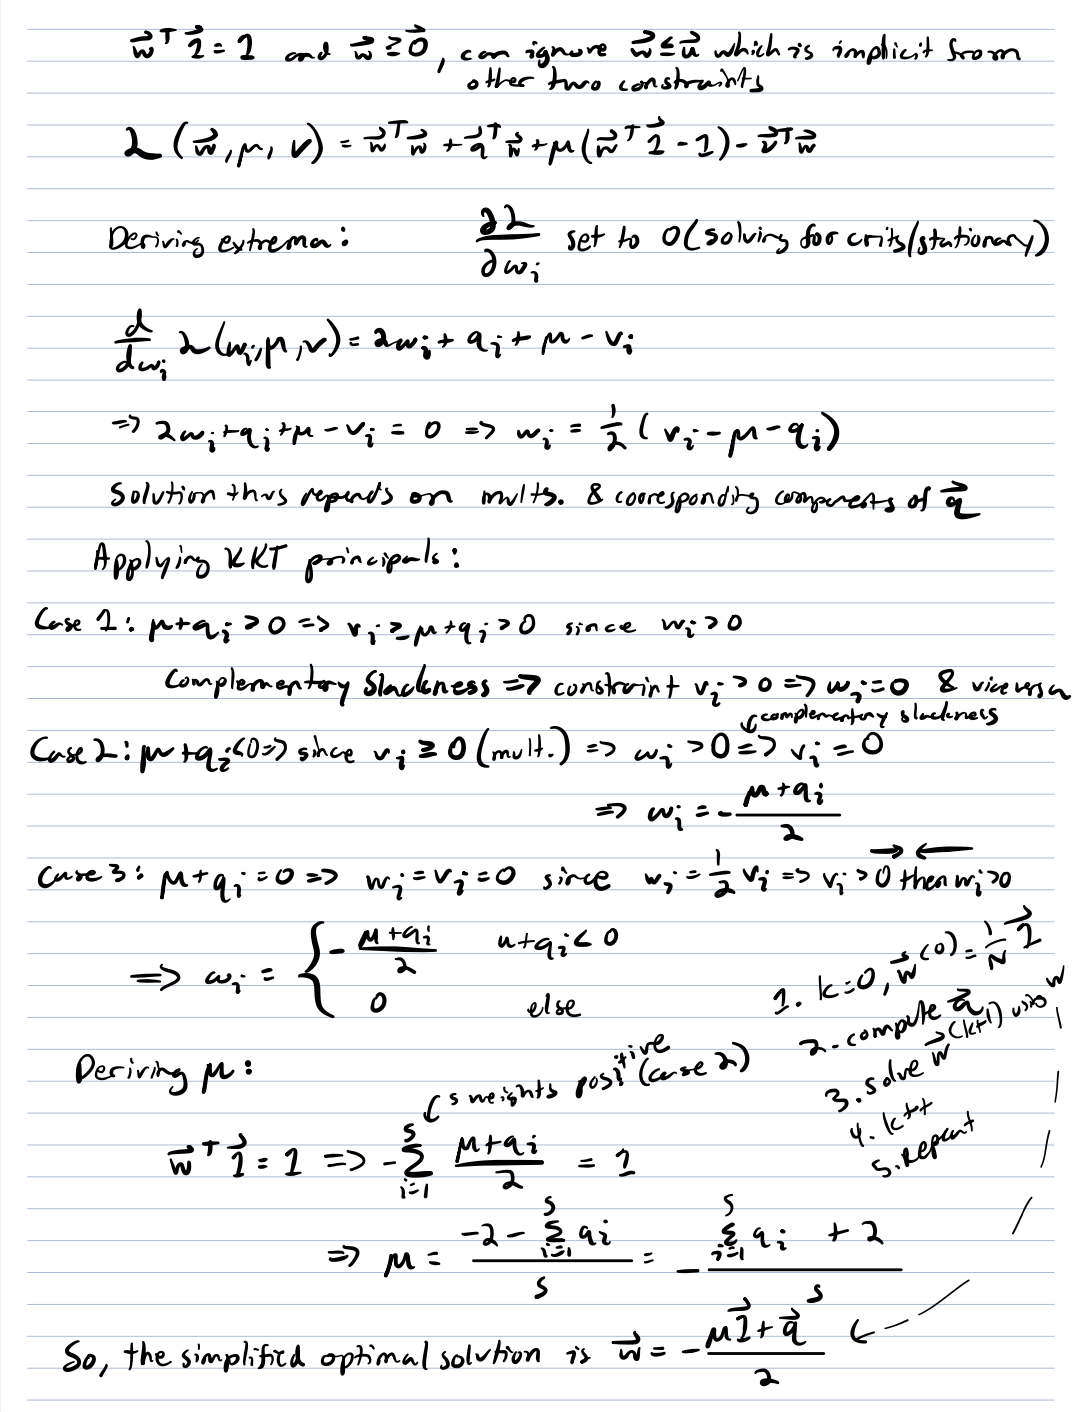 w⃗ᵀ1⃗ = 1 and w⃗ ≥ 0⃗, can ignore w⃗ ≤ u⃗ which is implicit from
other two constraints
L(w⃗, μ, v) = w⃗ᵀw⃗ + q⃗ᵀw⃗ + μ(w⃗ᵀ1⃗ - 1) - v⃗ᵀw⃗
Deriving extrema: ∂L/∂wᵢ set to 0 (solving for crits/stationary)
d/dwᵢ L(wᵢ, μ, v) = 2wᵢ + qᵢ + μ - vᵢ
=> 2wᵢ + qᵢ + μ - vᵢ = 0 => wᵢ = 1/2 (vᵢ - μ - qᵢ)
Solution thus depends on mults. & cooresponding components of q⃗
Applying KKT principals:
Case 1: μ+qᵢ > 0 => vᵢ ≥ μ+qᵢ > 0 since wᵢ > 0
Complementary Slackness => constraint vᵢ > 0 => wᵢ = 0 & vice versa
complementary slackness
Case 2: μ+qᵢ < 0 => since vᵢ ≥ 0 (mult.) => wᵢ > 0 => vᵢ = 0
=> wᵢ = - (μ+qᵢ)/2
Case 3: μ+qᵢ = 0 => wᵢ = vᵢ = 0 since wᵢ = 1/2 vᵢ => vᵢ > 0 then wᵢ > 0
=> wᵢ = { - (μ+qᵢ)/2 u+qᵢ < 0
0 else
1. k=0, w⃗⁽⁰⁾ = 1/N 1⃗
2. compute q⃗
3. solve w⃗⁽ᵏ⁺¹⁾ using w
4. k++
5. Repeat
Deriving μ:
s weights positive (case 2)
w⃗ᵀ1⃗ = 1 => - Σᵢ₌₁ˢ (μ+qᵢ)/2 = 1
=> μ = (-2 - Σᵢ₌₁ˢ qᵢ)/s = - (Σᵢ₌₁ˢ qᵢ + 2)/s
So, the simplified optimal solution is w⃗ = - (μ1⃗ + q⃗)/2